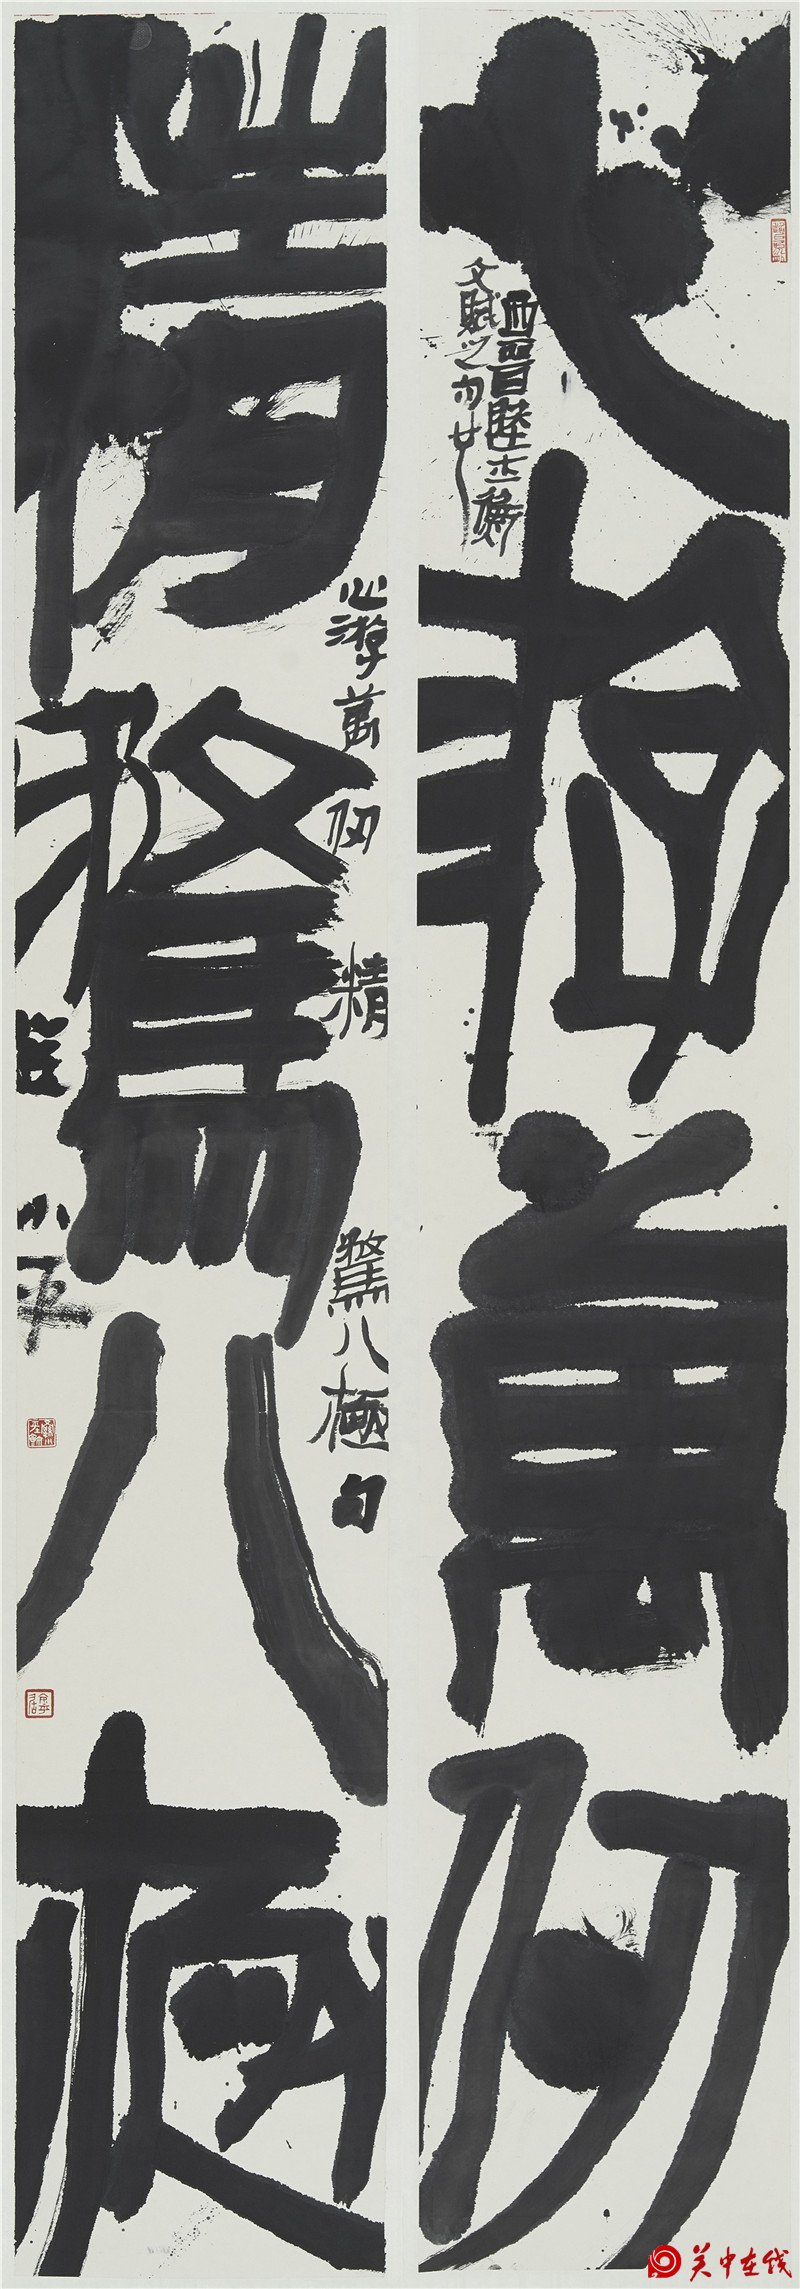 心游萬仞
西晉陸士衡
文賦之句也
精騖八極
心游萬仞精騖八極句
小平
关中在线